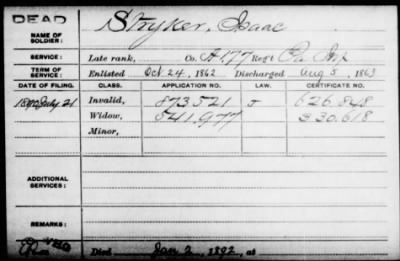 DEAD
NAME OF SOLDIER: Stryker, Isaac
SERVICE: Late rank, Co. A-177 Reg't Pa Inf
TERM OF SERVICE: Enlisted Oct 24, 1862 Discharged Aug 5, 1863
DATE OF FILING. CLASS. APPLICATION NO. LAW. CERTIFICATE NO.
1890 July 21 Invalid, 873521 J 626.848
Widow, 541.977 330.618
Minor,
ADDITIONAL SERVICES:
REMARKS:
Died Jan 2, 1892, at